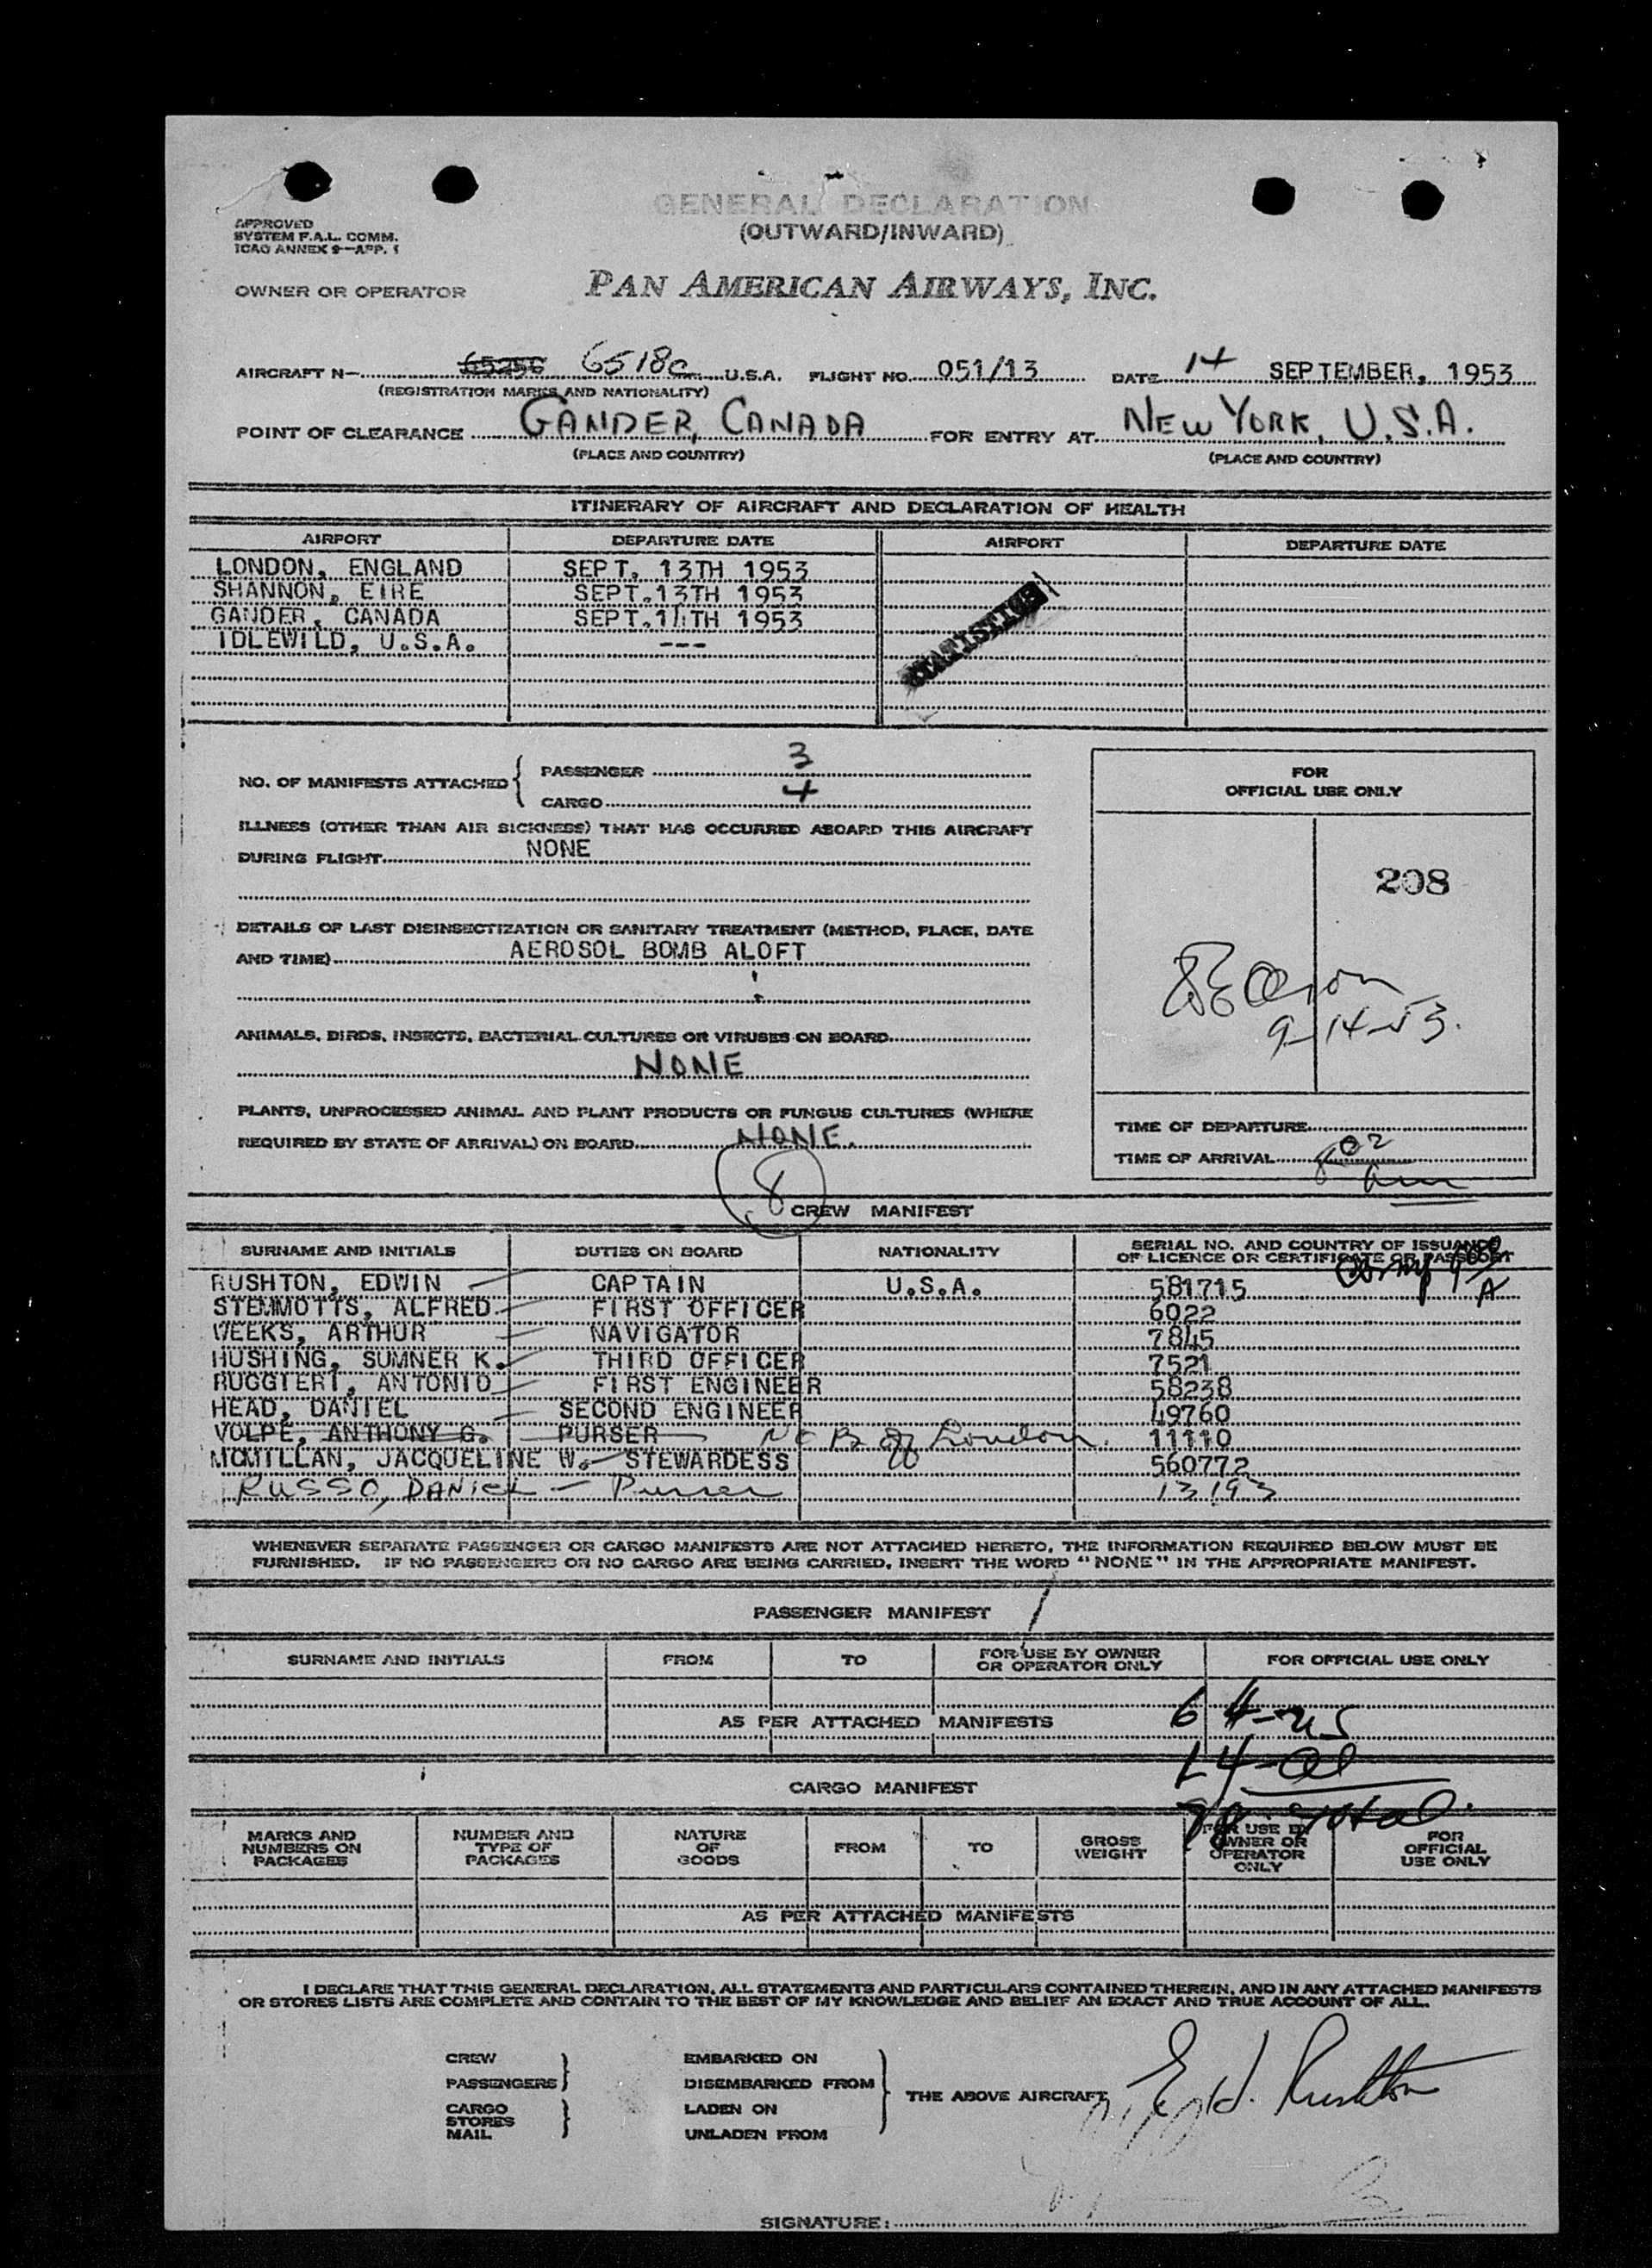 GENERAL DECLARATION
(OUTWARD/INWARD)
APPROVED
SYSTEM F.A.L. COMM.
ICAO ANNEX 9—APP. 1
OWNER OR OPERATOR PAN AMERICAN AIRWAYS, INC.
AIRCRAFT N— 65256 6518c U.S.A. FLIGHT NO. 051/13 DATE 14 SEPTEMBER, 1953
(REGISTRATION MARKS AND NATIONALITY)
POINT OF CLEARANCE GANDER, CANADA FOR ENTRY AT NEW YORK, U.S.A.
(PLACE AND COUNTRY) (PLACE AND COUNTRY)
ITINERARY OF AIRCRAFT AND DECLARATION OF HEALTH
AIRPORT DEPARTURE DATE AIRPORT DEPARTURE DATE
LONDON, ENGLAND SEPT. 13TH 1953
SHANNON, EIRE SEPT.13TH 1953
GANDER, CANADA SEPT.14TH 1953
IDLEWILD, U.S.A. ---
STATISTICS
NO. OF MANIFESTS ATTACHED { PASSENGER 3
CARGO 4
ILLNESS (OTHER THAN AIR SICKNESS) THAT HAS OCCURRED ABOARD THIS AIRCRAFT
DURING FLIGHT NONE
DETAILS OF LAST DISINSECTIZATION OR SANITARY TREATMENT (METHOD, PLACE, DATE
AND TIME) AEROSOL BOMB ALOFT
ANIMALS, BIRDS, INSECTS, BACTERIAL CULTURES OR VIRUSES ON BOARD
NONE
PLANTS, UNPROCESSED ANIMAL AND PLANT PRODUCTS OR FUNGUS CULTURES (WHERE
REQUIRED BY STATE OF ARRIVAL) ON BOARD NONE.
FOR
OFFICIAL USE ONLY
208
9-14-53.
TIME OF DEPARTURE
TIME OF ARRIVAL 8 02
am
8
CREW MANIFEST
SURNAME AND INITIALS DUTIES ON BOARD NATIONALITY SERIAL NO. AND COUNTRY OF ISSUANCE
OF LICENCE OR CERTIFICATE OR PASSPORT
RUSHTON, EDWIN CAPTAIN U.S.A. 581715
STEMMOTTS, ALFRED FIRST OFFICER 6022
WEEKS, ARTHUR NAVIGATOR 7845
HUSHING, SUMNER K. THIRD OFFICER 7521
RUGGIERI, ANTONIO FIRST ENGINEER 58238
HEAD, DANIEL SECOND ENGINEER 49760
VOLPE, ANTHONY G. PURSER London. 11110
MCMILLAN, JACQUELINE W. STEWARDESS 560772
RUSSO, DANIEL — Purser 13193
WHENEVER SEPARATE PASSENGER OR CARGO MANIFESTS ARE NOT ATTACHED HERETO, THE INFORMATION REQUIRED BELOW MUST BE
FURNISHED. IF NO PASSENGERS OR NO CARGO ARE BEING CARRIED, INSERT THE WORD "NONE" IN THE APPROPRIATE MANIFEST.
PASSENGER MANIFEST
SURNAME AND INITIALS FROM TO FOR USE BY OWNER
OR OPERATOR ONLY FOR OFFICIAL USE ONLY
AS PER ATTACHED MANIFESTS
CARGO MANIFEST
MARKS AND
NUMBERS ON
PACKAGES
NUMBER AND
TYPE OF
PACKAGES
NATURE
OF
GOODS
FROM TO
GROSS
WEIGHT
FOR USE BY
OWNER OR
OPERATOR
ONLY
FOR
OFFICIAL
USE ONLY
AS PER ATTACHED MANIFESTS
I DECLARE THAT THIS GENERAL DECLARATION, ALL STATEMENTS AND PARTICULARS CONTAINED THEREIN, AND IN ANY ATTACHED MANIFESTS
OR STORES LISTS ARE COMPLETE AND CONTAIN TO THE BEST OF MY KNOWLEDGE AND BELIEF AN EXACT AND TRUE ACCOUNT OF ALL.
CREW
PASSENGERS }
CARGO
STORES
MAIL }
EMBARKED ON
DISEMBARKED FROM
LADEN ON
UNLADEN FROM } THE ABOVE AIRCRAFT
E. H. Rushton
SIGNATURE: